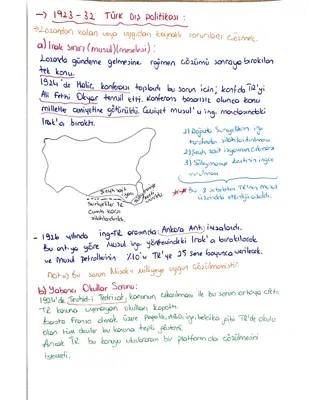 → 1923-32 Türk Dış politikası :
Lozandan kalan veya ingizden kaynaklı sorunları çözmek.
a) Irak sınırı (musul) (meselesi) :
Lozanda gündeme gelmesine rağmen çözümü sonraya bırakılan
tek konu.
1924'de Haliç konferası toplandı bu sorun için; konf.da TR'yi
Ali Fethi Okyar temsil etti. Konferans başarısız olunca konu
milletler cemiyetine götürüldü. Cemiyet musul'u ing. mandasındaki
Irak'a bıraktı.
1) Doğuda Süryanilerin ing.
tarafından silahlandırılması
2) Şeyh Sait isyanının çıkması
3) Süleymaniye kentinin ingiz
Şeyh Sait
isy.
Süryaniler TR
Cumh. karşı
silahlandırıldı.
Bu 3 sebepten TR'nin musul
üzerinde etkinliği azaldı.
- 1926 yılında ing-TR arasında Ankara Ant. imzalandı.
Bu ant.ya göre Musul ing. yönetimindeki Irak'a bırakılacak
ve Musul petrollerinin %10'u TR'ye 25 sene boyunca verilecek.
Not => Bu sorun Misak-ı milliyeye uygun çözülmemiştir.
b) Yabancı Okullar Sorunu:
1924'de Tevhid-i Tedrisat kanunun çıkarılması ile bu sorun ortaya çıktı.
TR kanuna uymayan okulları kapattı.
Başta Fransa olmak üzere Papalık, ABD, ing, belçika gibi TR'de okulu
olan tüm devler bu kanuna tepki gösterdi.
Ancak TR bu konuyu uluslararası bir platform da çözülmesini
istemedi.